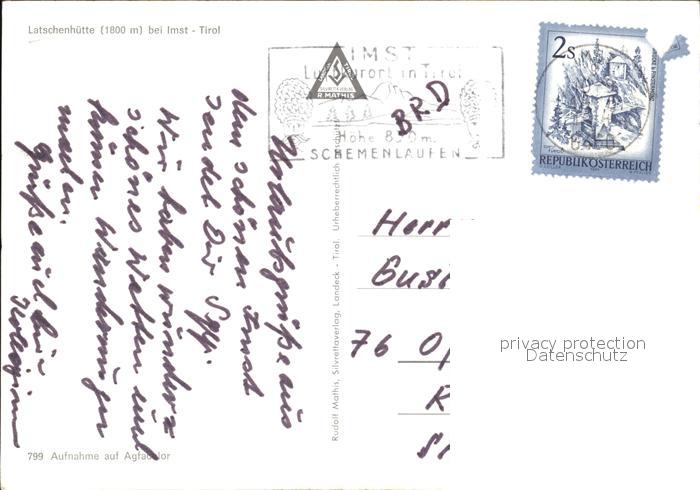 Latschenhütte (1800 m) bei Imst - Tirol
IMST
Luftkurort in Tirol
Höhe 850 m.
SCHEMENLAUFEN
SILVRETTA-VERLAG
R. MATHIS
BRD
2s
REPUBLIK ÖSTERREICH
Urlaubsgrüße aus
dem schönen Imst
sendet Dir Sepp.
Wir haben wunderz
schönes Wetter und
können Wanderungen
machen.
Grüße auch für
Kollegin
Rudolf Mathis, Silvrettaverlag, Landeck - Tirol. Urheberrechtlich
Herr
Gus
76 O
K
S
privacy protection
Datenschutz
799 Aufnahme auf Agfacolor